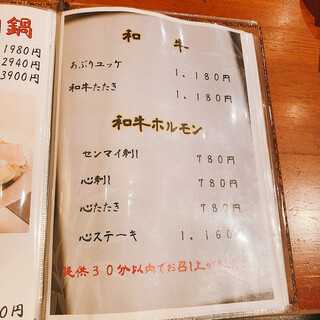 鍋
1980円
2940円
3900円
0円
和牛
あぶりユッケ 1,180円
和牛たたき 1,180円
和牛ホルモン
センマイ刺し 780円
心刺し 780円
心たたき 780円
心ステーキ 1,160
提供30分以内でお召し上がり